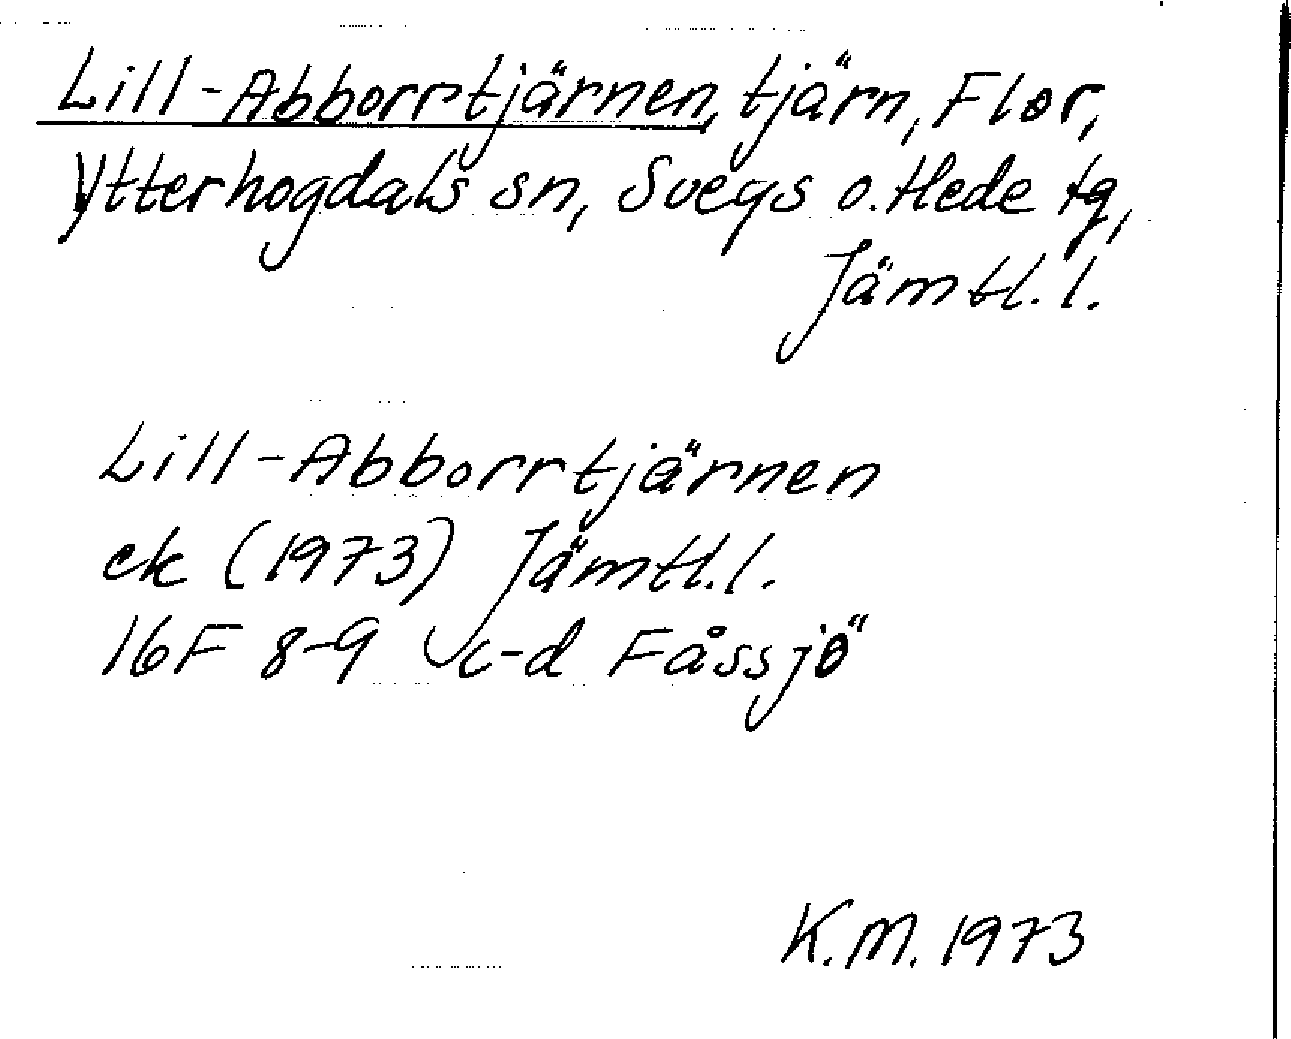 Lill-Abborrtjärnen, tjärn, Flor,
Ytterhogdals sn, Svegs o. Hede tg,
Jämtl. l.
Lill-Abborrtjärnen
ek (1973) Jämtl. l.
16F 8-9 c-d Fåssjö
K.M. 1973